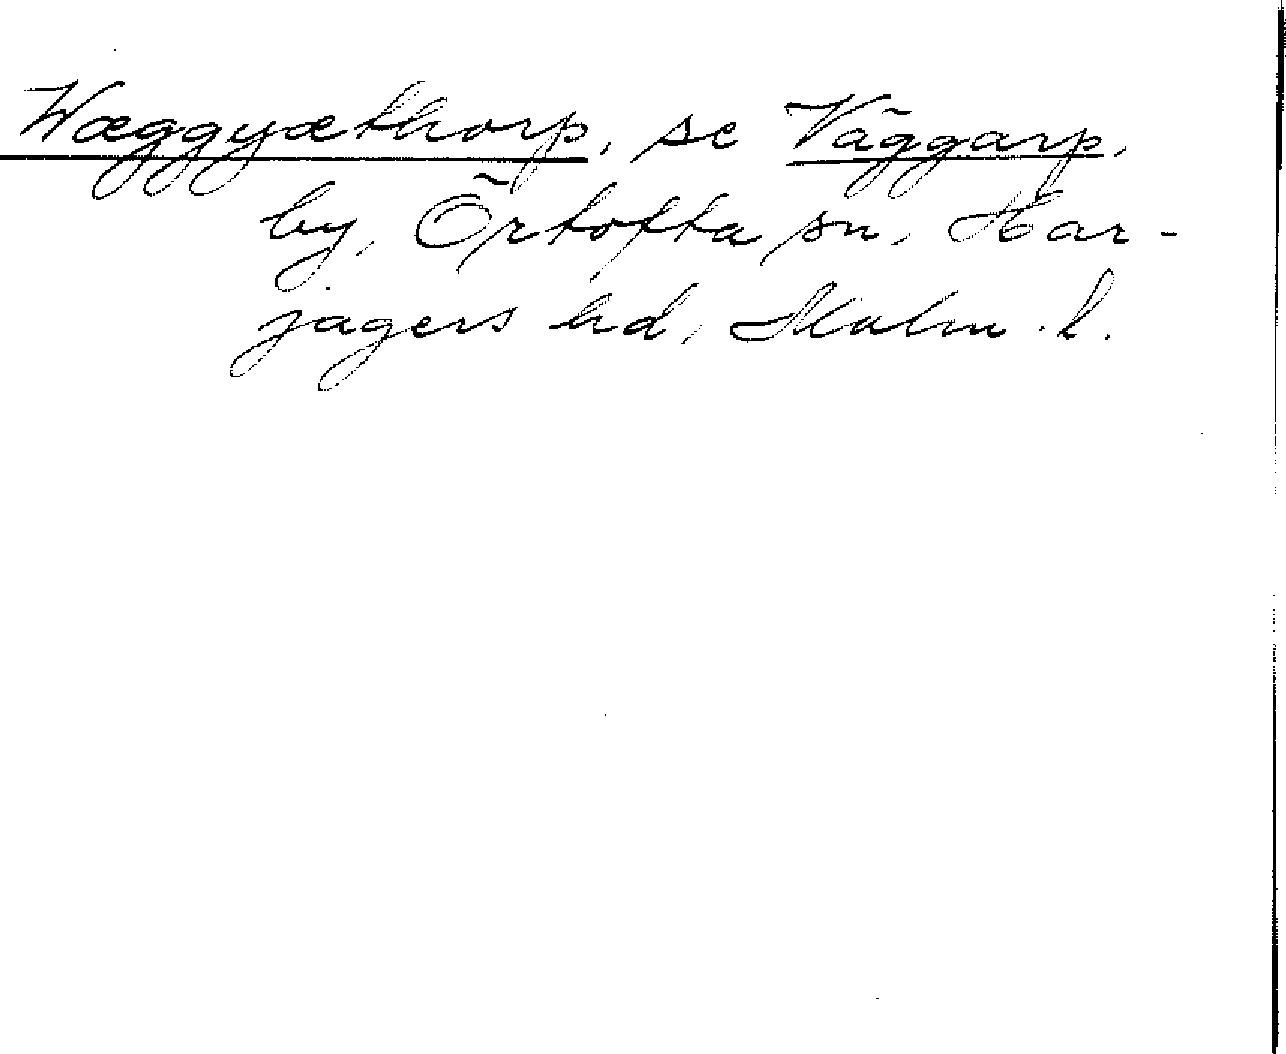 Wæggyæthorp, se Väggarp,
by, Örtofta sn, Har-
jagers hd, Malm. l.